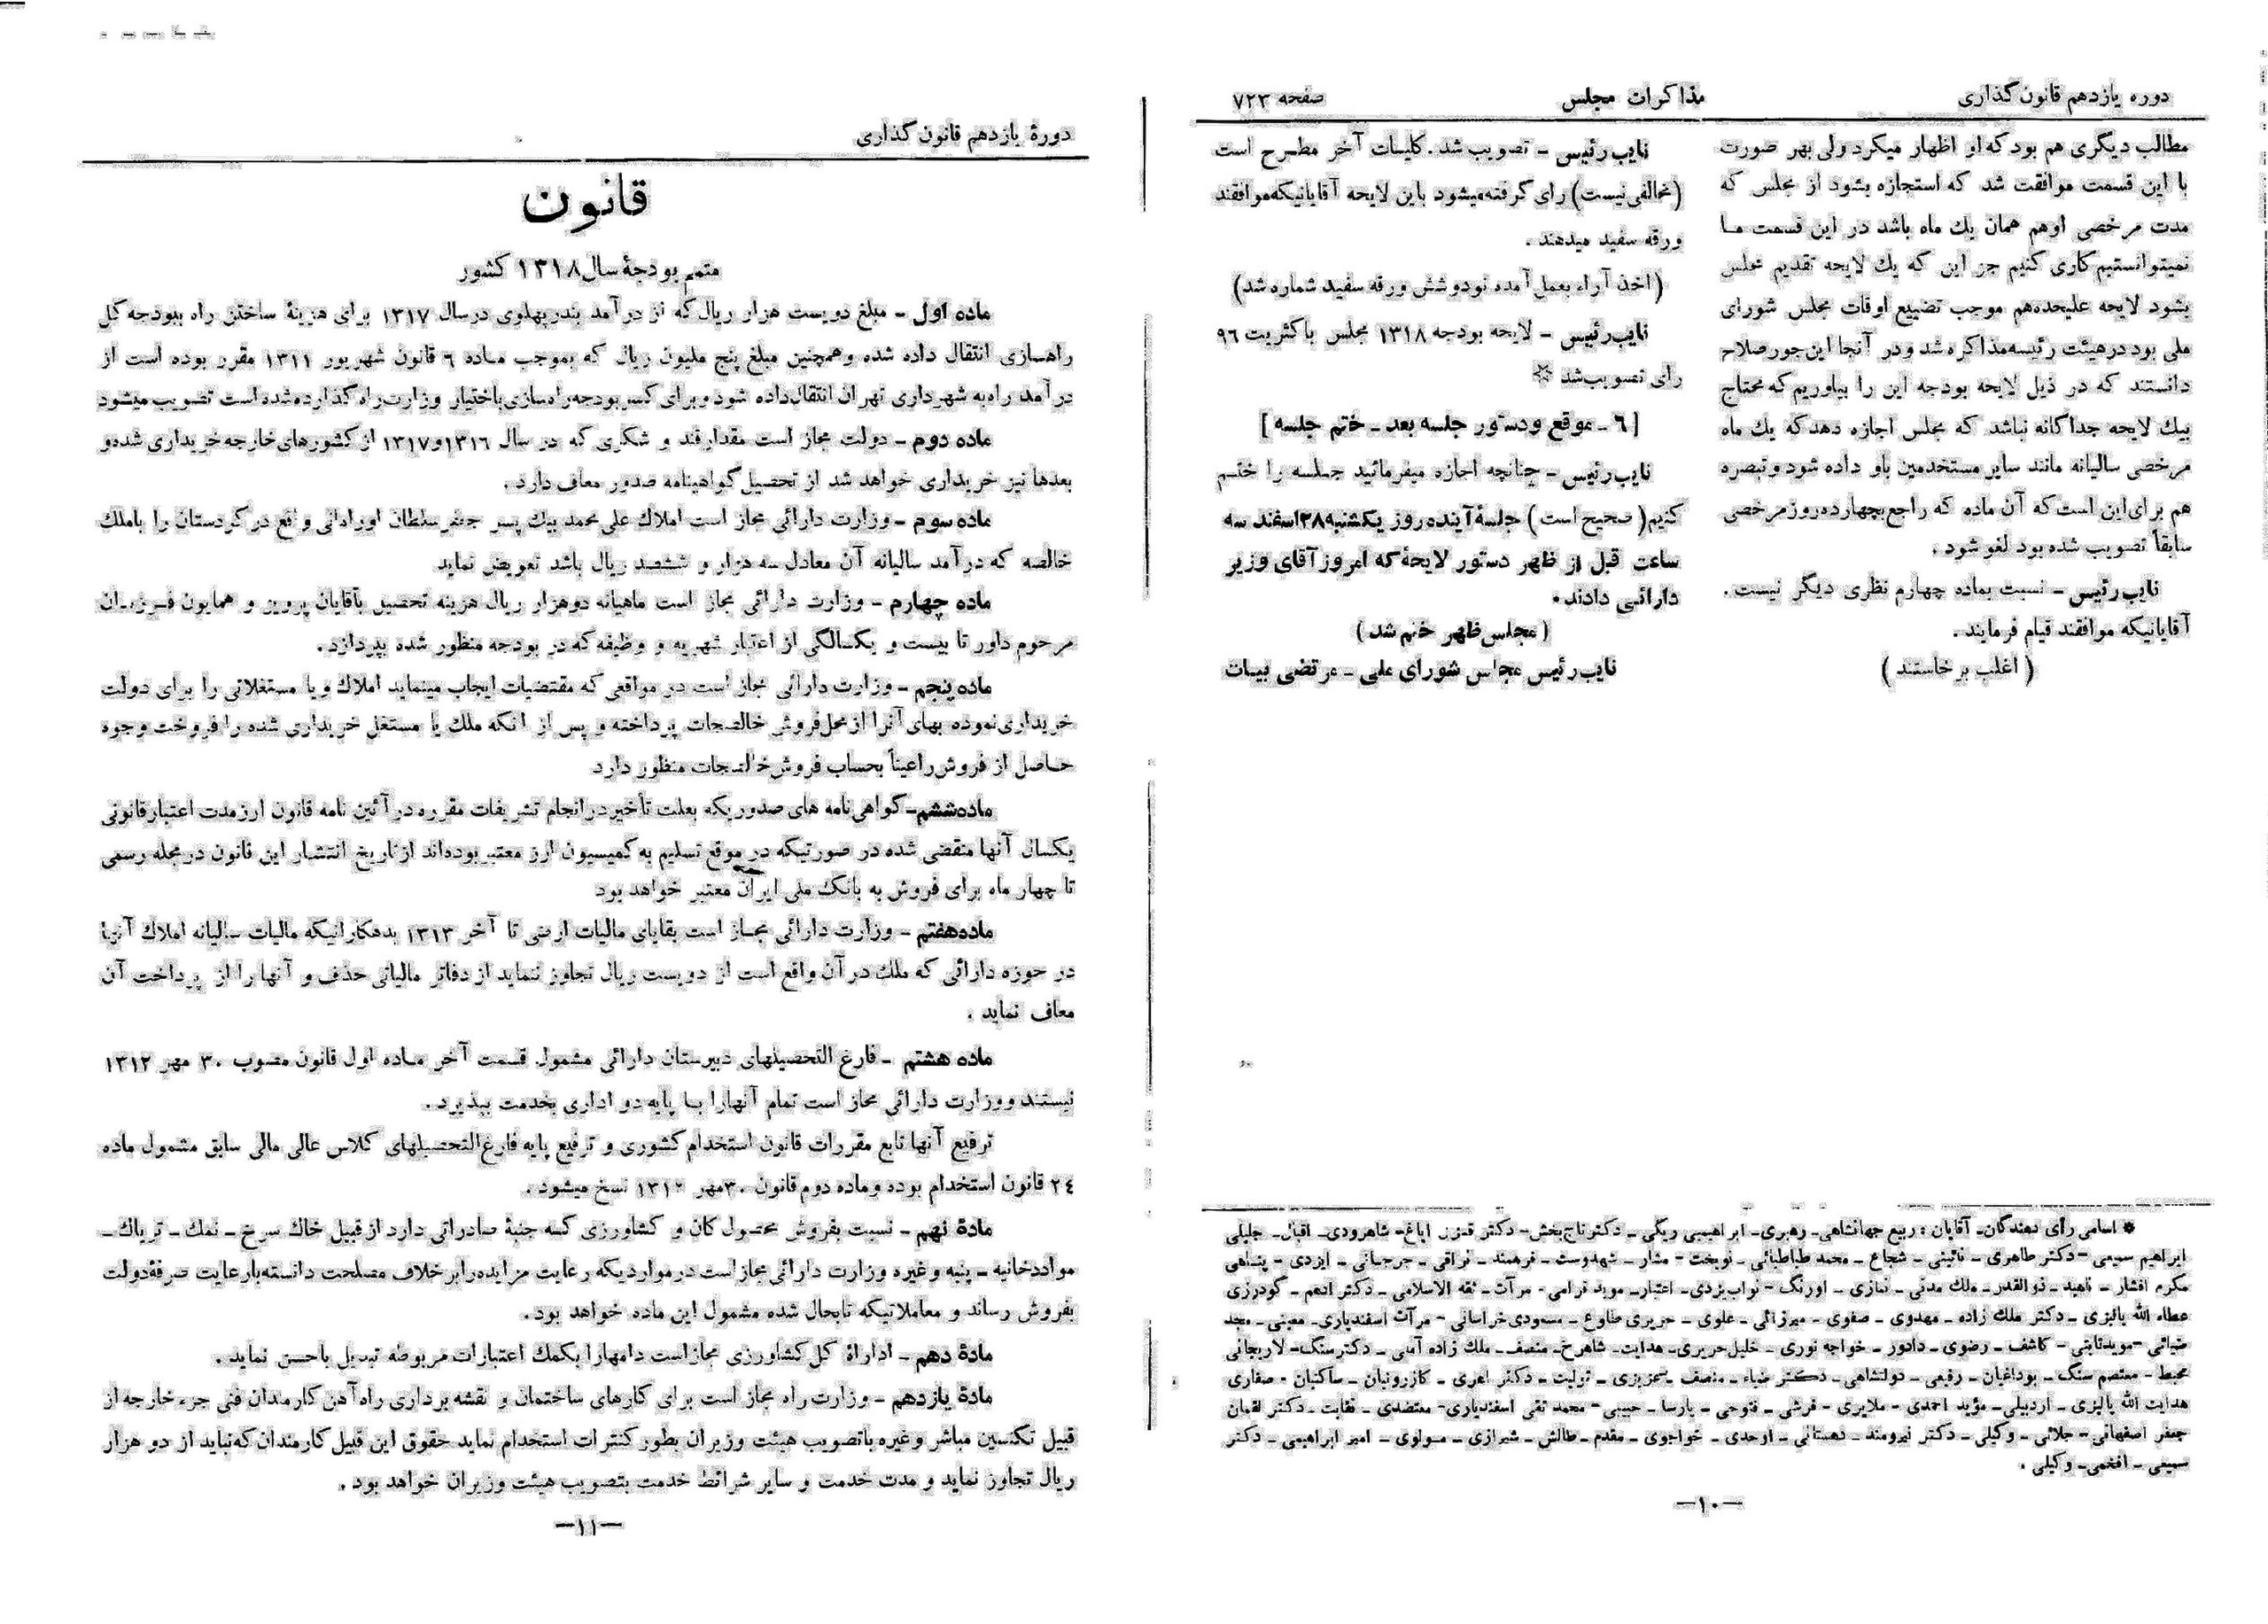 دوره یازدهم قانون‌گذاری
مذاکرات مجلس
صفحه ۷۲۳
مطالب دیگری هم بود که او اظهار میکرد ولی بهر صورت
با این قسمت موافقت شد که استجازه بشود از مجلس که
مدت مرخصی اوهم همان یك ماه باشد در این قسمت ما
نمیتوانستیم کاری کنیم جز این که یك لایحه تقدیم مجلس
بشود لایحه علیحده‌هم موجب تضییع اوقات مجلس شورای
ملی بود در هیئت رئیسه مذاکره شد و در آنجا این‌جور صلاح
دانستند که در ذیل لایحه بودجه این را بیاوریم که محتاج
بیك لایحه جداگانه نباشد که مجلس اجازه دهد که یك ماه
مرخصی سالیانه مانند سایر مستخدمین باو داده شود و تبصره
هم برای این است که آن ماده که راجع بچهارده روز مرخصی
سابقاً تصویب شده بود لغو شود .
نایب رئیس - نسبت بماده چهارم نظری دیگر نیست .
آقایانیکه موافقند قیام فرمایند .
( اغلب برخاستند )
نایب رئیس - تصویب شد . کلیات آخر مطرح است
(مخالفی نیست) رای گرفته میشود باین لایحه آقایانیکه موافقند
ورقه سفید میدهند .
(اخذ آراء بعمل آمده نودوشش ورقه سفید شماره شد)
نایب رئیس - لایحه بودجه ۱۳۱۸ مجلس باکثریت ۹۶
رای تصویب شد ※
[ ۶ - موقع و دستور جلسه بعد - ختم جلسه ]
نایب رئیس - چنانچه اجازه میفرمائید جلسه را ختم
کنیم ( صحیح است ) جلسهٔ آینده روز یکشنبه ۲۸ اسفند سه
ساعت قبل از ظهر دستور لایحهٔ که امروز آقای وزیر
دارائی دادند .
( مجلس ظهر ختم شد )
نایب رئیس مجلس شورای ملی - مرتضی بیات
※ اسامی رأی دهندگان - آقایان : ربیع جهانشاهی - رهبری - ابراهیمی ریگی - دکتر تاج‌بخش - دکتر قزل ایاغ - شاهرودی - اقبال - جلیلی
ابراهیم سمیعی - دکتر طاهری - نائینی - شجاع - محمد طباطبائی - نوبخت - مشار - شهدوست - فرهمند - نراقی - جرجانی - ایزدی - پناهی
مکرم افشار - ناهید - ذوالقدر - ملك مدنی - نمازی - اورنگ - نواب یزدی - اعتبار - موید قوامی - مرآت - ثقه الاسلامی - دکتر ادهم - گودرزی
عطاء الله پالیزی - دکتر ملك زاده - مهدوی - صفوی - میرزائی - علوی - حریری طلوع - مسعودی خراسانی - مرآت اسفندیاری - معینی - مجد
ضیائی - مویدثابتی - کاشف - رضوی - دادور - خواجه نوری - خلیل حریری - هدایت - شاهرخ - منصف - ملك زاده آملی - دکتر سنگ - لاریجانی
محیط - معتصم سنگ - بوداغیان - رفیعی - دولتشاهی - دکتر ضیاء - منصف - تبریزی - تولیت - دکتر اهری - کازرونیان - ساکنیان - صفاری
هدایت الله پالیزی - اردبیلی - مؤید احمدی - ملایری - فرشی - فتوحی - پارسا - حبیبی - محمد تقی اسفندیاری - معتضدی - نقابت - دکتر لقمان
جعفر اصفهانی - جلائی - وکیلی - دکتر نیرومند - دهستانی - اوحدی - خواجوی - مقدم - طالش - شیرازی - مولوی - امیر ابراهیمی - دکتر
سمیعی - افخمی - وکیلی .
-۱۰-
دورهٔ یازدهم قانون‌گذاری
قانون
متمم بودجهٔ سال ۱۳۱۸ کشور
ماده اول - مبلغ دویست هزار ریال که از درآمد بندر پهلوی در سال ۱۳۱۷ برای هزینهٔ ساختن راه ببودجه کل
راهسازی انتقال داده شده و همچنین مبلغ پنج ملیون ریال که بموجب ماده ۶ قانون شهریور ۱۳۱۱ مقرر بوده است از
درآمد راه به شهرداری تهران انتقال داده شود و برای کسر بودجه راه‌سازی باختیار وزارت راه گذارده شده است تصویب میشود
ماده دوم - دولت مجاز است مقدار قند و شکری که در سال ۱۳۱۶ و ۱۳۱۷ از کشورهای خارجه خریداری شده و
بعدها نیز خریداری خواهد شد از تحصیل گواهینامه صدور معاف دارد .
ماده سوم - وزارت دارائی مجاز است املاك علی محمد بیك پسر جعفر سلطان اورامانی واقع در کردستان را باملك
خالصه که درآمد سالیانه آن معادل سه هزار و ششصد ریال باشد تعویض نماید
ماده چهارم - وزارت دارائی مجاز است ماهیانه دوهزار ریال هزینه تحصیل بآقایان پرویز و همایون فرزندان
مرحوم داور تا بیست و یکسالگی از اعتبار شهریه و وظیفه که در بودجه منظور شده بپردازد .
ماده پنجم - وزارت دارائی مجاز است در مواقعی که مقتضیات ایجاب مینماید املاك و یا مستغلاتی را برای دولت
خریداری نموده بهای آنرا از محل فروش خالصجات پرداخته و پس از آنکه ملك یا مستغل خریداری شده را فروخت وجوه
حاصل از فروش را عیناً بحساب فروش خالصجات منظور دارد
ماده ششم - گواهی نامه های صدوریکه بعلت تأخیر در انجام تشریفات مقرره در آئین نامه قانون ارز مدت اعتبار قانونی
یکسال آنها منقضی شده در صورتیکه در موقع تسلیم به کمیسیون ارز معتبر بوده‌اند از تاریخ انتشار این قانون در مجله رسمی
تا چهار ماه برای فروش به بانك ملی ایران معتبر خواهد بود
ماده هفتم - وزارت دارائی مجاز است بقایای مالیات ارضی تا آخر ۱۳۱۳ بدهکارانیکه مالیات سالیانه املاك آنها
در حوزه دارائی که ملك در آن واقع است از دویست ریال تجاوز ننماید از دفاتر مالیاتی حذف و آنها را از پرداخت آن
معاف نماید .
ماده هشتم - فارغ التحصیلهای دبیرستان دارائی مشمول قسمت آخر ماده اول قانون مصوب ۳۰ مهر ۱۳۱۲
نیستند و وزارت دارائی مجاز است تمام آنهارا با پایه دو اداری بخدمت بپذیرد .
ترفیع آنها تابع مقررات قانون استخدام کشوری و ترفیع پایه فارغ‌التحصیلهای کلاس عالی مالی سابق مشمول ماده
۲۴ قانون استخدام بوده و ماده دوم قانون ۳۰مهر ۱۳۱۲ نسخ میشود .
مادهٔ نهم - نسبت بفروش محصول کان و کشاورزی که جنبهٔ صادراتی دارد از قبیل خاك سرخ - نمك - تریاك -
مواد دخانیه - پنبه و غیره وزارت دارائی مجاز است در مواردیکه رعایت مزایده را برخلاف مصلحت دانسته بارعایت صرفهٔ دولت
بفروش رساند و معاملاتیکه تابحال شده مشمول این ماده خواهد بود .
مادهٔ دهم - ادارهٔ کل کشاورزی مجاز است دامهارا بکمك اعتبارات مربوطه تبدیل باحسن نماید .
مادهٔ یازدهم - وزارت راه مجاز است برای کارهای ساختمان و نقشه برداری راه‌آهن کارمندان فنی جزء خارجه از
قبیل تکنسین مباشر و غیره باتصویب هیئت وزیران بطور کنترات استخدام نماید حقوق این قبیل کارمندان که نباید از دو هزار
ریال تجاوز نماید و مدت خدمت و سایر شرائط خدمت بتصویب هیئت وزیران خواهد بود .
-۱۱-